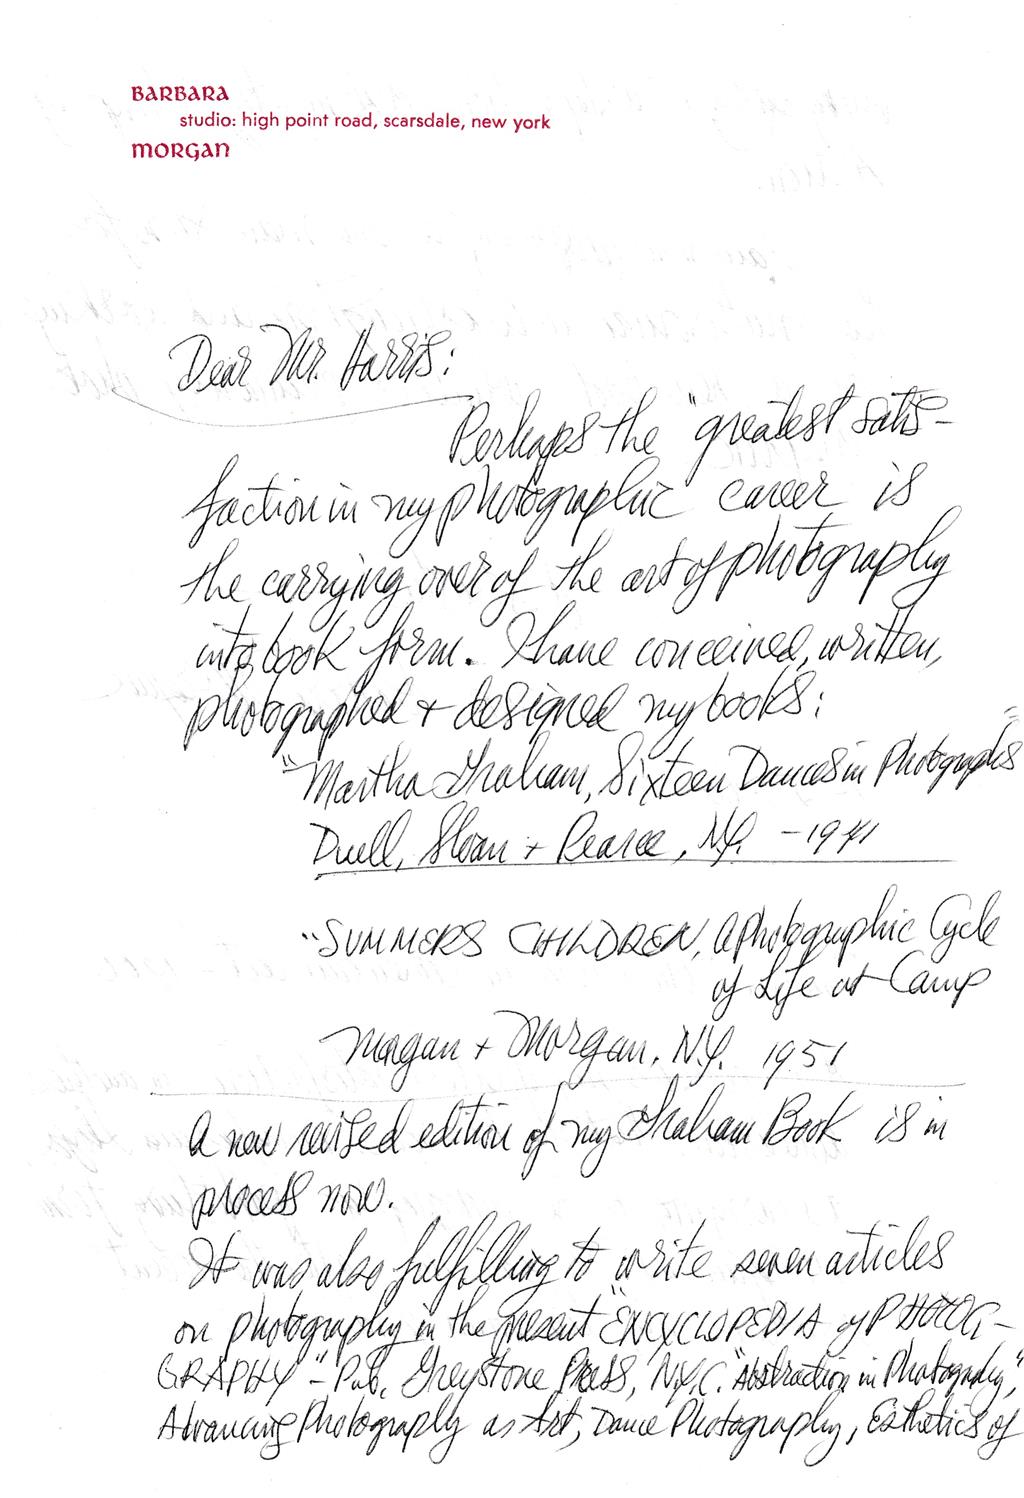 BARBARA
studio: high point road, scarsdale, new york
MORGAN
Dear Mr. Harris:
Perhaps the "greatest satis-
faction in my photographic career is
the carrying over of the art of photography
into book form. I have conceived, written,
photographed + designed my books:
"Martha Graham, Sixteen Dances in Photographs"
Duell, Sloan + Pearce, N.Y. - 1941
"SUMMERS CHILDREN, A Photographic Cycle
of Life at Camp
Morgan + Morgan, N.Y. 1951
A new revised edition of my Graham Book is in
process now.
It was also fulfilling to write seven articles
on photography in the present "ENCYCLOPEDIA of PHOTOG-
GRAPHY" - Pub. Greystone Press, N.Y.C. "Abstraction in Photography,"
Advancing Photography as Art, Dance Photography, Esthetics of